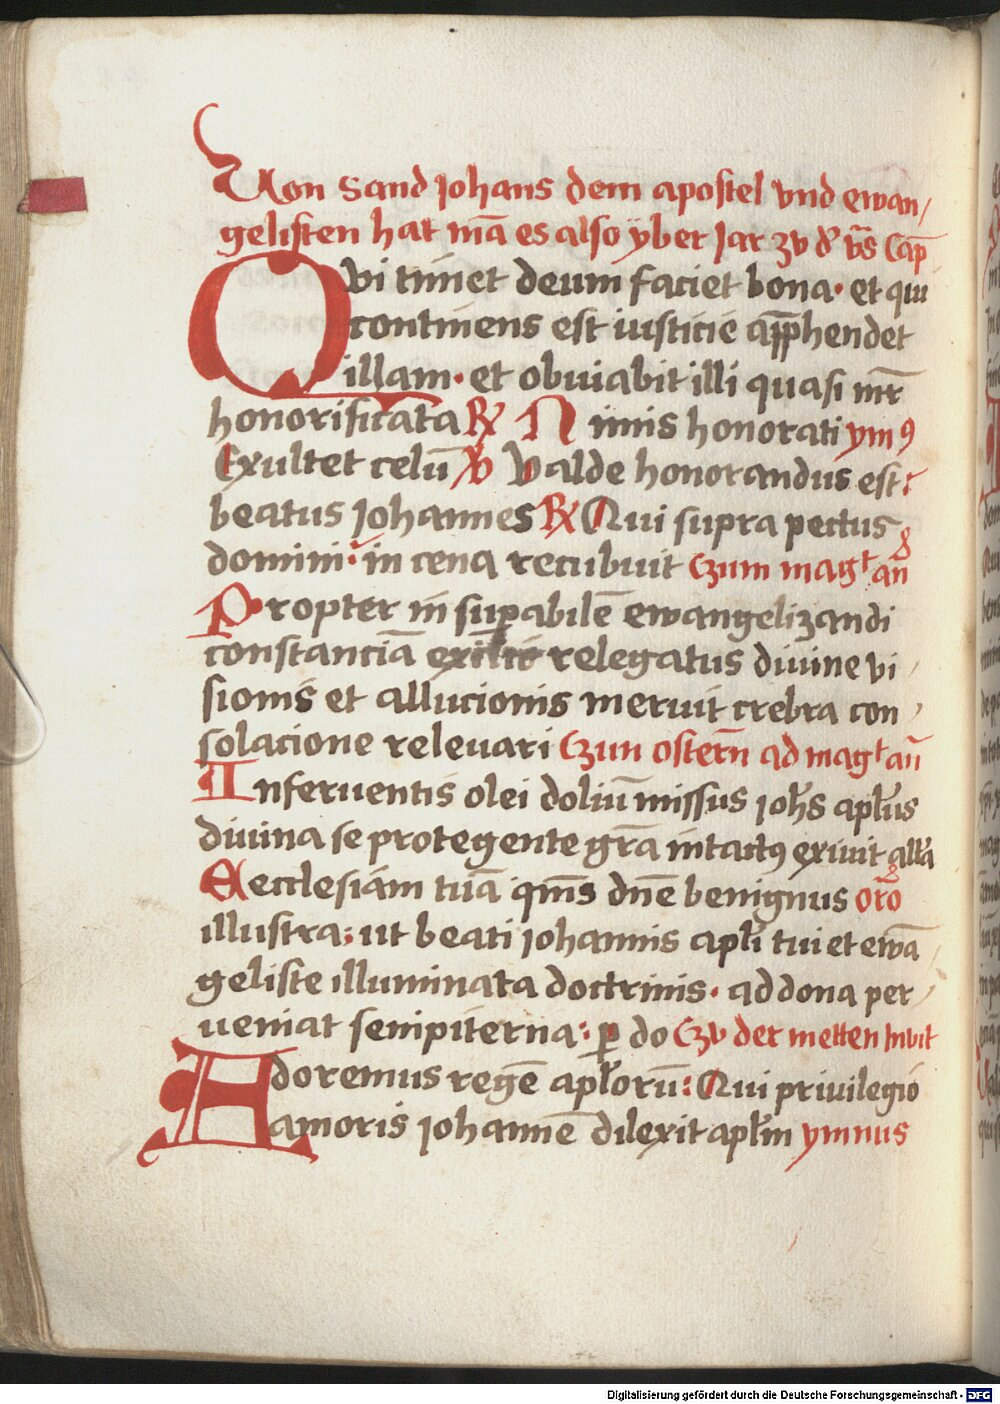 Von Sand Johans dem apostel vnd ewan/
gelisten hat mā es also yber Jar zv dʳ vs̄ Cap̄
Qvi timet deum faciet bona· et qui
continens est iusticie app̄hendet
illam· et obuiabit illi quasi mr̄
honorificata ℟ Nimis honorati ym9
Exultet celū ℣ Valde honorandus est:
beatus Johannes ℟ Qui supra pectus
domini: in cena recubuit Czum magᵗ an
Propter insup̱abilē ewangelizandi
constanciā exilio relegatus diuine vi/
sionis et allucionis meruit crebra con/
solacione releuari Czun ostern̄ ad magᵗ an̄
Inferuentis olei doliū missus joh̄s apl̄us
diuina se protegente gr̄a intact9 exiuit all̄a
Eecclesiam tuā qm̄s dn̄e benignus or̄o
illustra: ut beati johannis apl̄i tui et ewā/
geliste illuminata doctrinis· ad dona per/
ueniat sempiterna: ꝑ do Czv der metten Inuit
Adoremus regē apl̄orū: Qui priuilegio
amoris johannē dilexit apl̄m ymnus
Digitalisierung gefördert durch die Deutsche Forschungsgemeinschaft - DFG